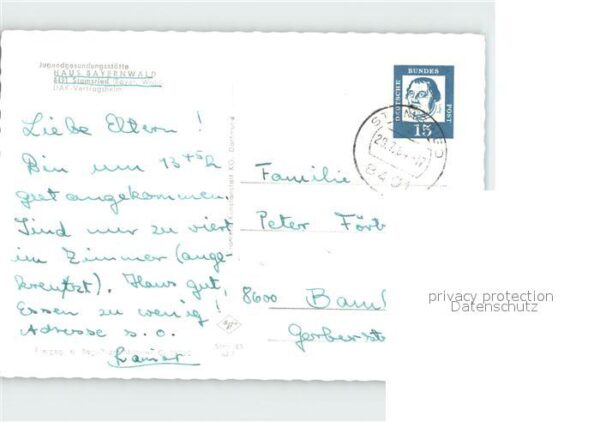 Jugendgesundungsstätte
HAUS BAYERNWALD
8491 Stamsried (Bayer. Wald)
DAK-Vertragsheim
Liebe Eltern!
Bin um 13 45 h
gut angekommen.
Sind nur zu viert
im Zimmer (ange-
kreutzt). Haus gut,
Essen zu wenig!
Adresse s. o.
Rainer
DEUTSCHE
BUNDES
POST
15
Familie
Peter Förb
8600 Bam
Gerberst
privacy protection
Datenschutz